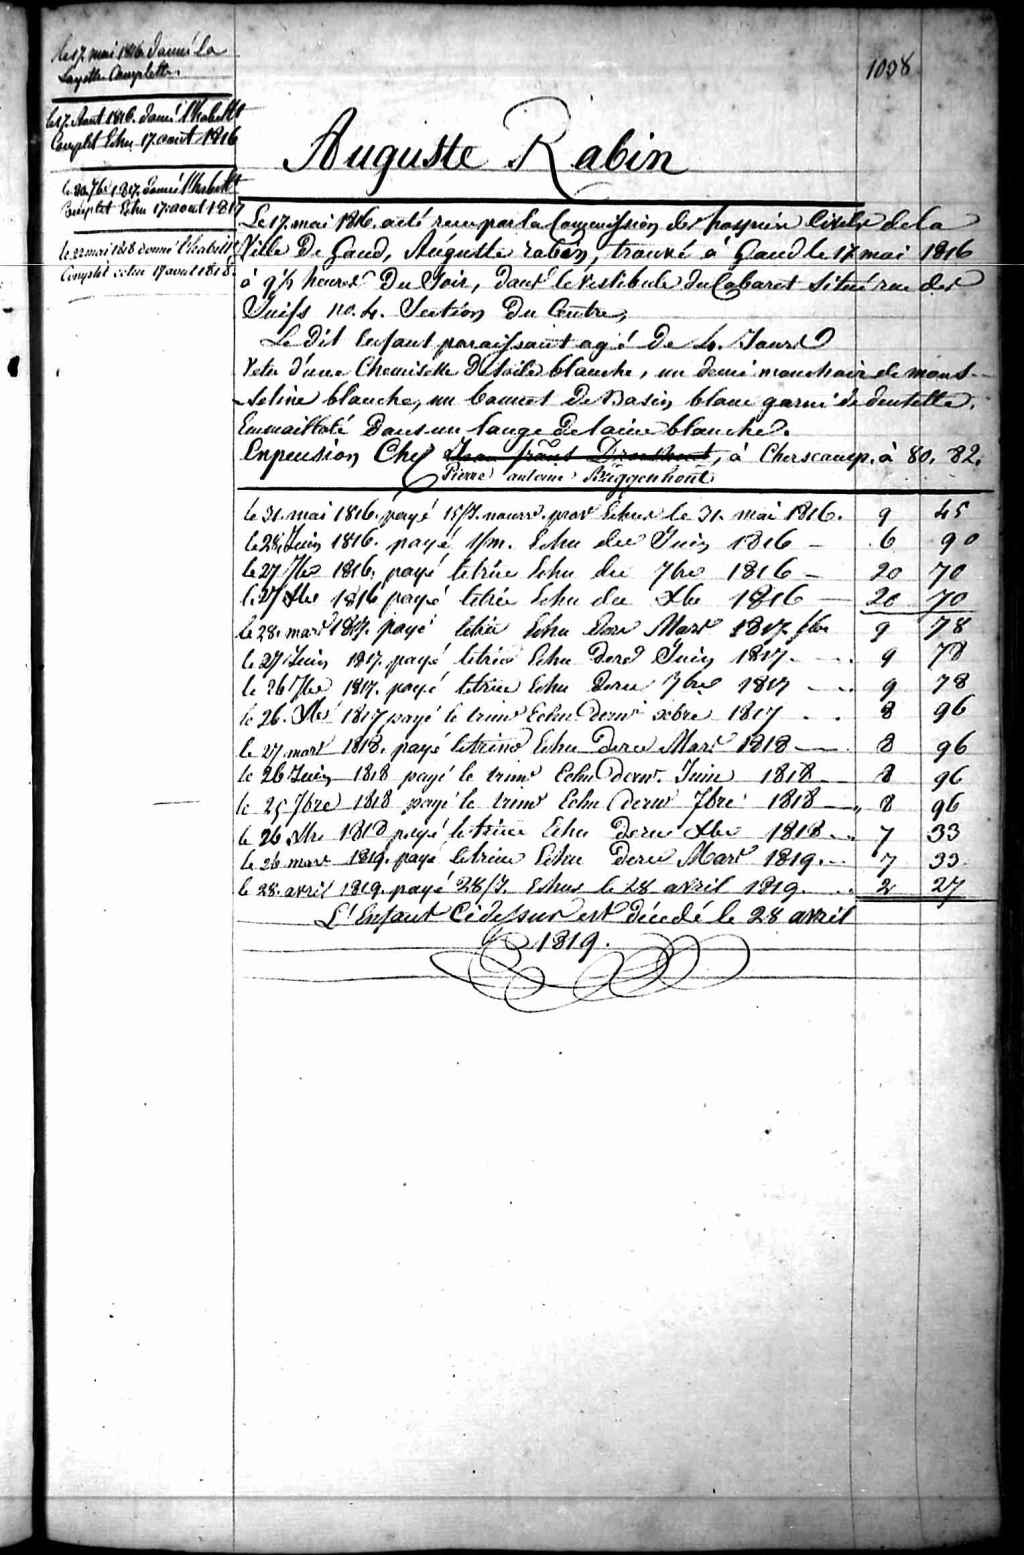 1038
le 17 mai 1816 donné la
Layette Complette.
le 17. Aout 1816. donné l'habillt
Complet Echu 17. aout 1816
le 30. 7bre 1817. donné l'habillt
Complet Echu 17. aout 1817
le 22 mai 1818 donné l'habillt
Complet echu 17 aout 1818.
Auguste Rabin
Le 17. mai 1816. a été reçu par la Commission des hospices Civils de la
Ville De Gand, Auguste rabin, trouvé à Gand le 17 mai 1816
à 9½ heures Du Soir, dans le Vestibule du Cabaret situé rue des
Juifs no. 4. Section Du Centre,
Le Dit Enfant paraissant agé De 4. Jours
Vetu d'une Chemisette De toile blanche, un demi mouchoir de mous-
seline blanche, un bonnet De Basin blanc garni de dentelle.
Emmailloté Dans un lange De laine blanche.
En pension Chez Jean frans, à Cherscamp. à 80. 82.
Pierre antoine Briggenhout
le 31. mai 1816. payé 15/J. nourr. prov Echus le 31. mai 1816. 9 45
le 28. Juin 1816. payé 1/m. Echu de Juin 1816 – 6 90
le 27 7bre 1816. payé le trim Echu de 7bre 1816 – 20 70
le 27 Xbre 1816 payé le trim Echu de Xbre 1816 – 20 70
le 28. mars 1817. payé le trim Echu Dern Mars 1817. 9 78
le 27 Juin 1817. payé le trim Echu Dern Juin 1817. – 9 78
le 26 7bre 1817. payé le trim Echu Dern 7bre 1817 – 9 78
le 26. Xbre 1817 payé le trim Echu Dern xbre 1817 . . 8 96
le 27 mars 1818. payé le trim Echu Dern Mars 1818 – 8 96
le 26 Juin 1818 payé le trim Echu Dern. Juin 1818 – 8 96
le 25 7bre 1818 payé le trim Echu Dern 7bre 1818 – 8 96
le 26 Xbre 1818 payé le trim Echu Dern Xbre 1818 – 7 33
le 26 mars 1819. payé le trim Echu Dern Mars 1819. – 7 33
le 28. avril 1819. payé 28/J. Echus le 28 avril 1819. – 2 27
L'Enfant Cidessus est décédé le 28 avril
1819.